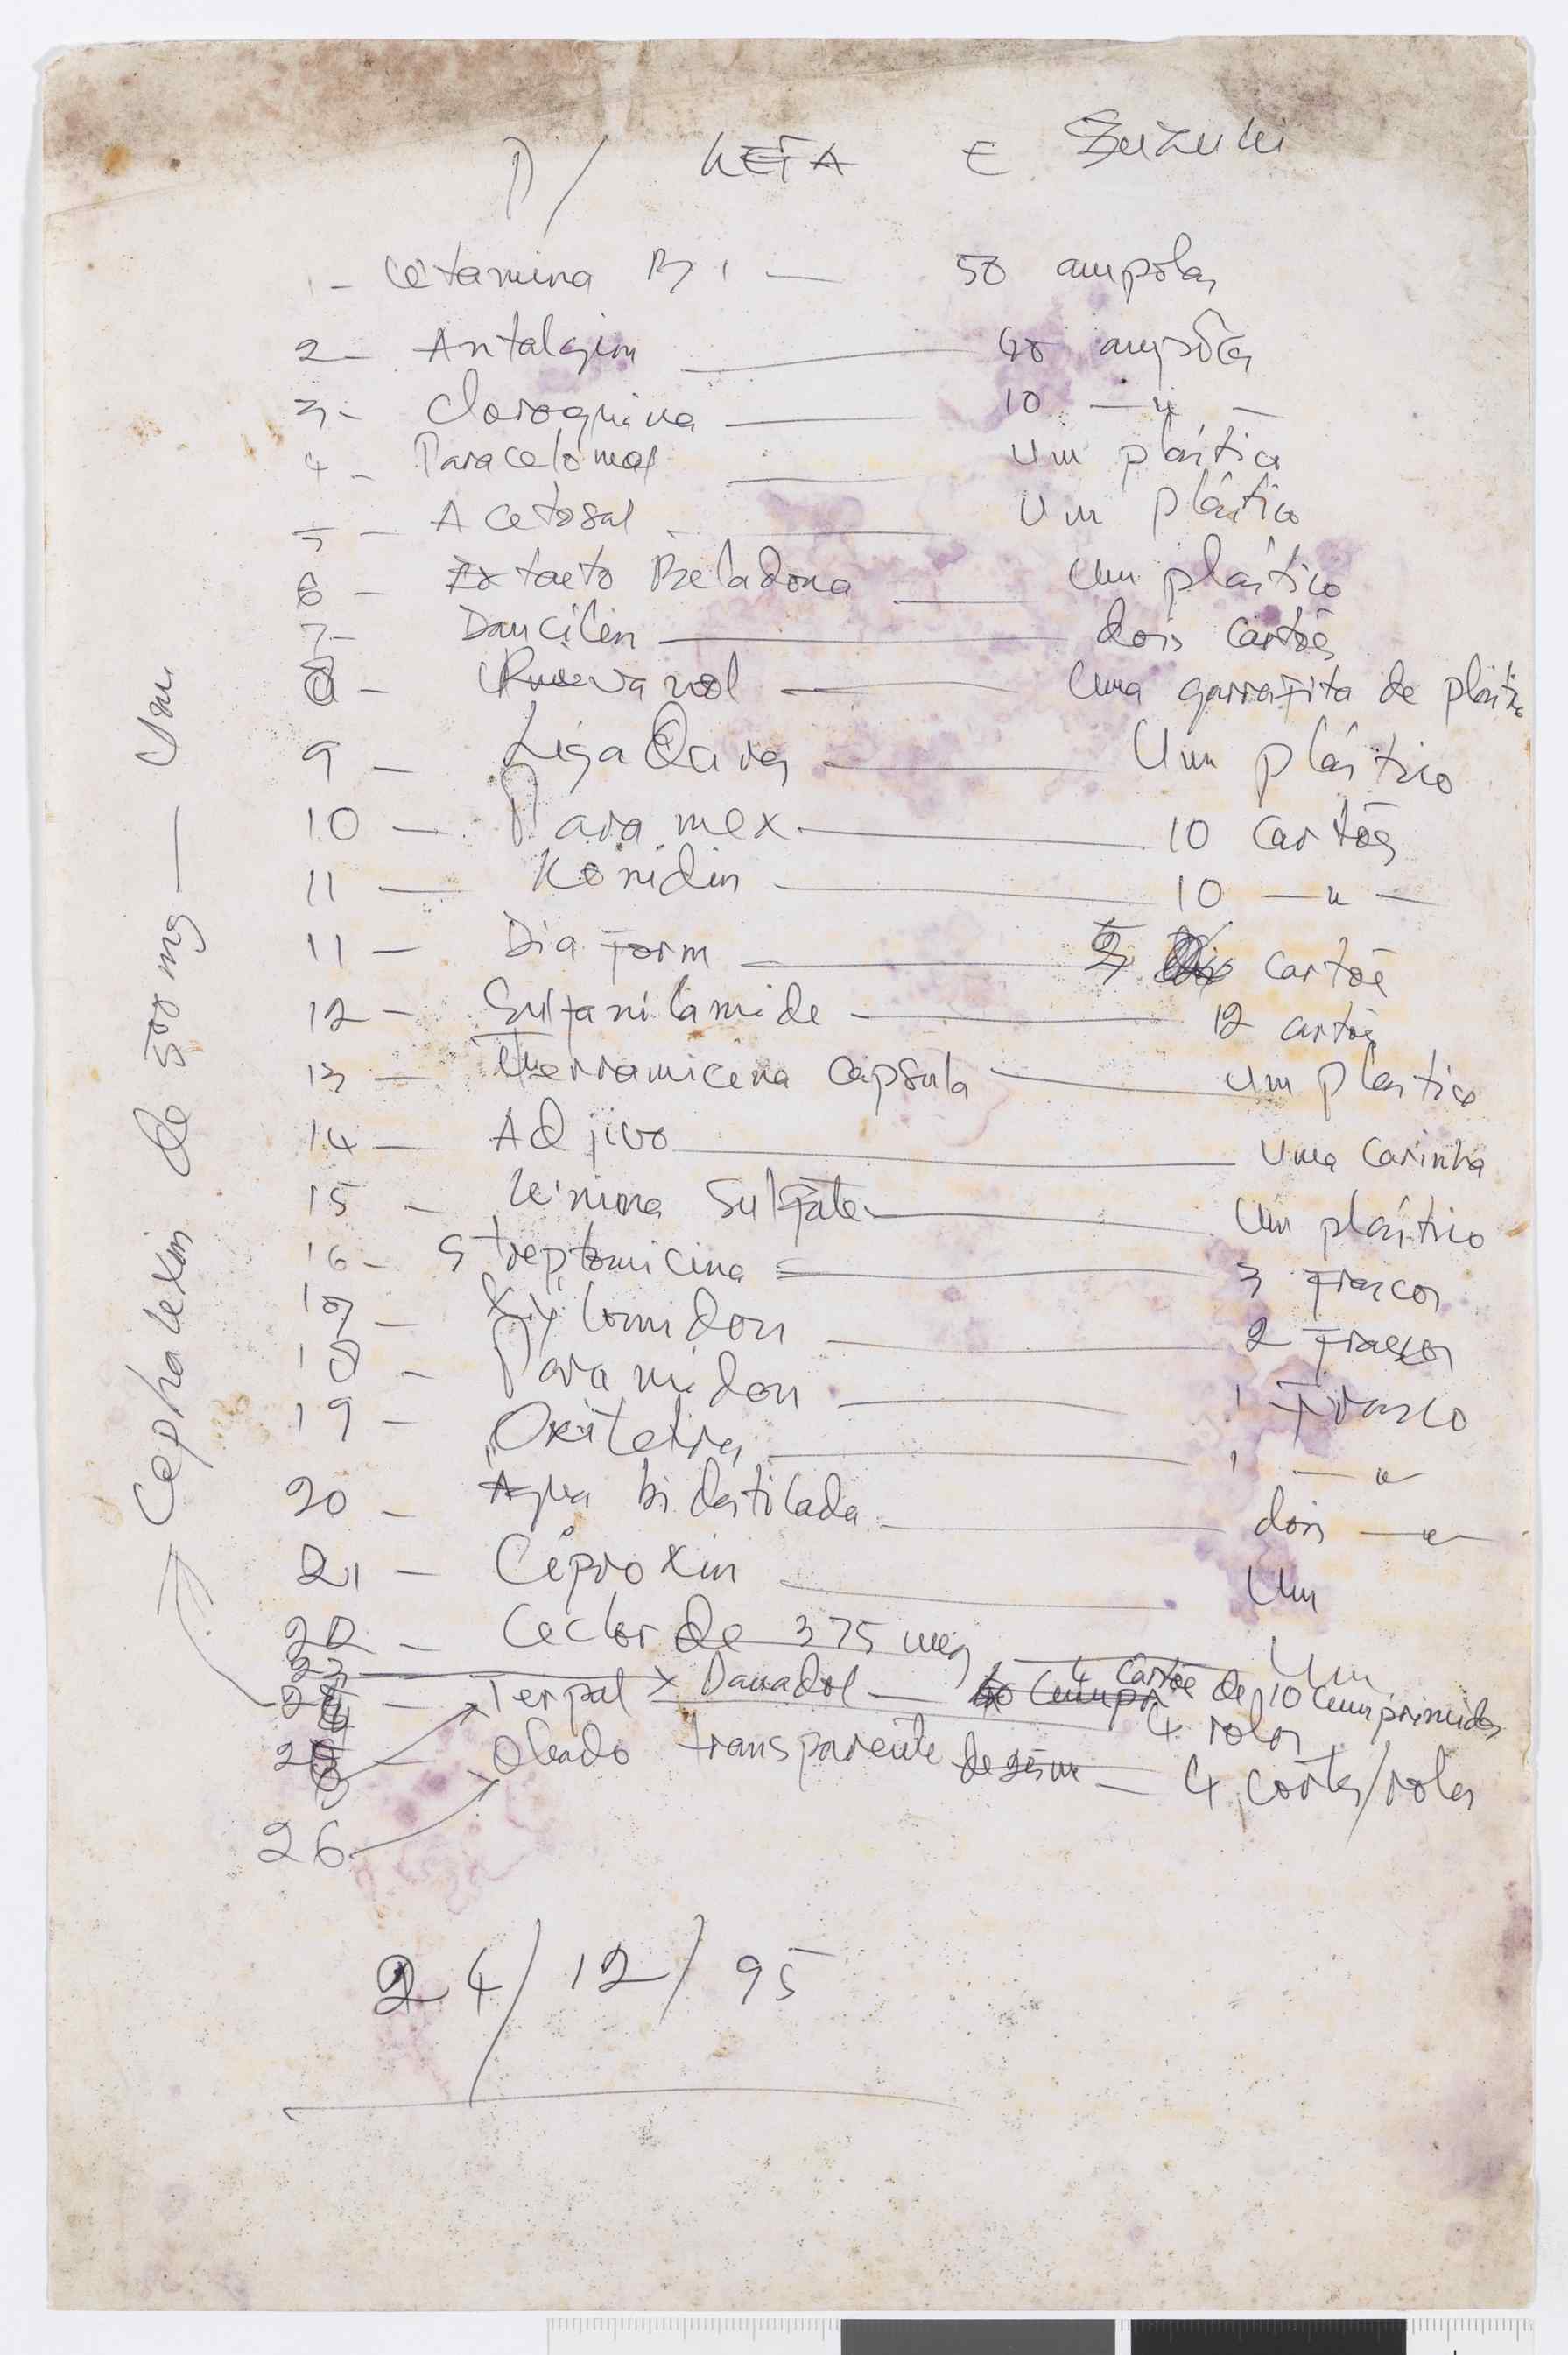 P/ KETA E Suzuki
1- Cetamina B1 — 50 ampolas
2- Antalgin — 40 ampolas
3- Cloroquina — 10 —"—
4- Paracetomol — Um plástico
5- Acetosal — Um plástico
6- Extaeto Beladona — Um plástico
7- Dancilin — dois cartões
8- Rivanol — Uma garrafita de plástico
9- Ligaduras — Um plástico
10- Paramex — 10 cartões
11- Konidin — 10 —"—
11- Diaform — cartõe
12- Sulfanilamide — 12 cartõe
13- Terramicina capsula — um plastico
14- Adjivo — uma carinha
15- kinina Sulfate — Um plástico
16- Streptomicina — 3 Frascos
17- Xylomidon — 2 Frascos
18- Paramidon — 1 Frasco
19- Oxitetra — 1 —"—
20- Agua bidestilada — dois —"—
21- Ciproxin — Um
22- Ceclor de 375 meg — Um
23
24- Terpal x Danadol — 4 Cartõe de 10 Cumprimidos
4 rolos
25- Oleado transparente — 4 cortes/rolos
26
Cephalexin de 500 mg — Um
24/12/95